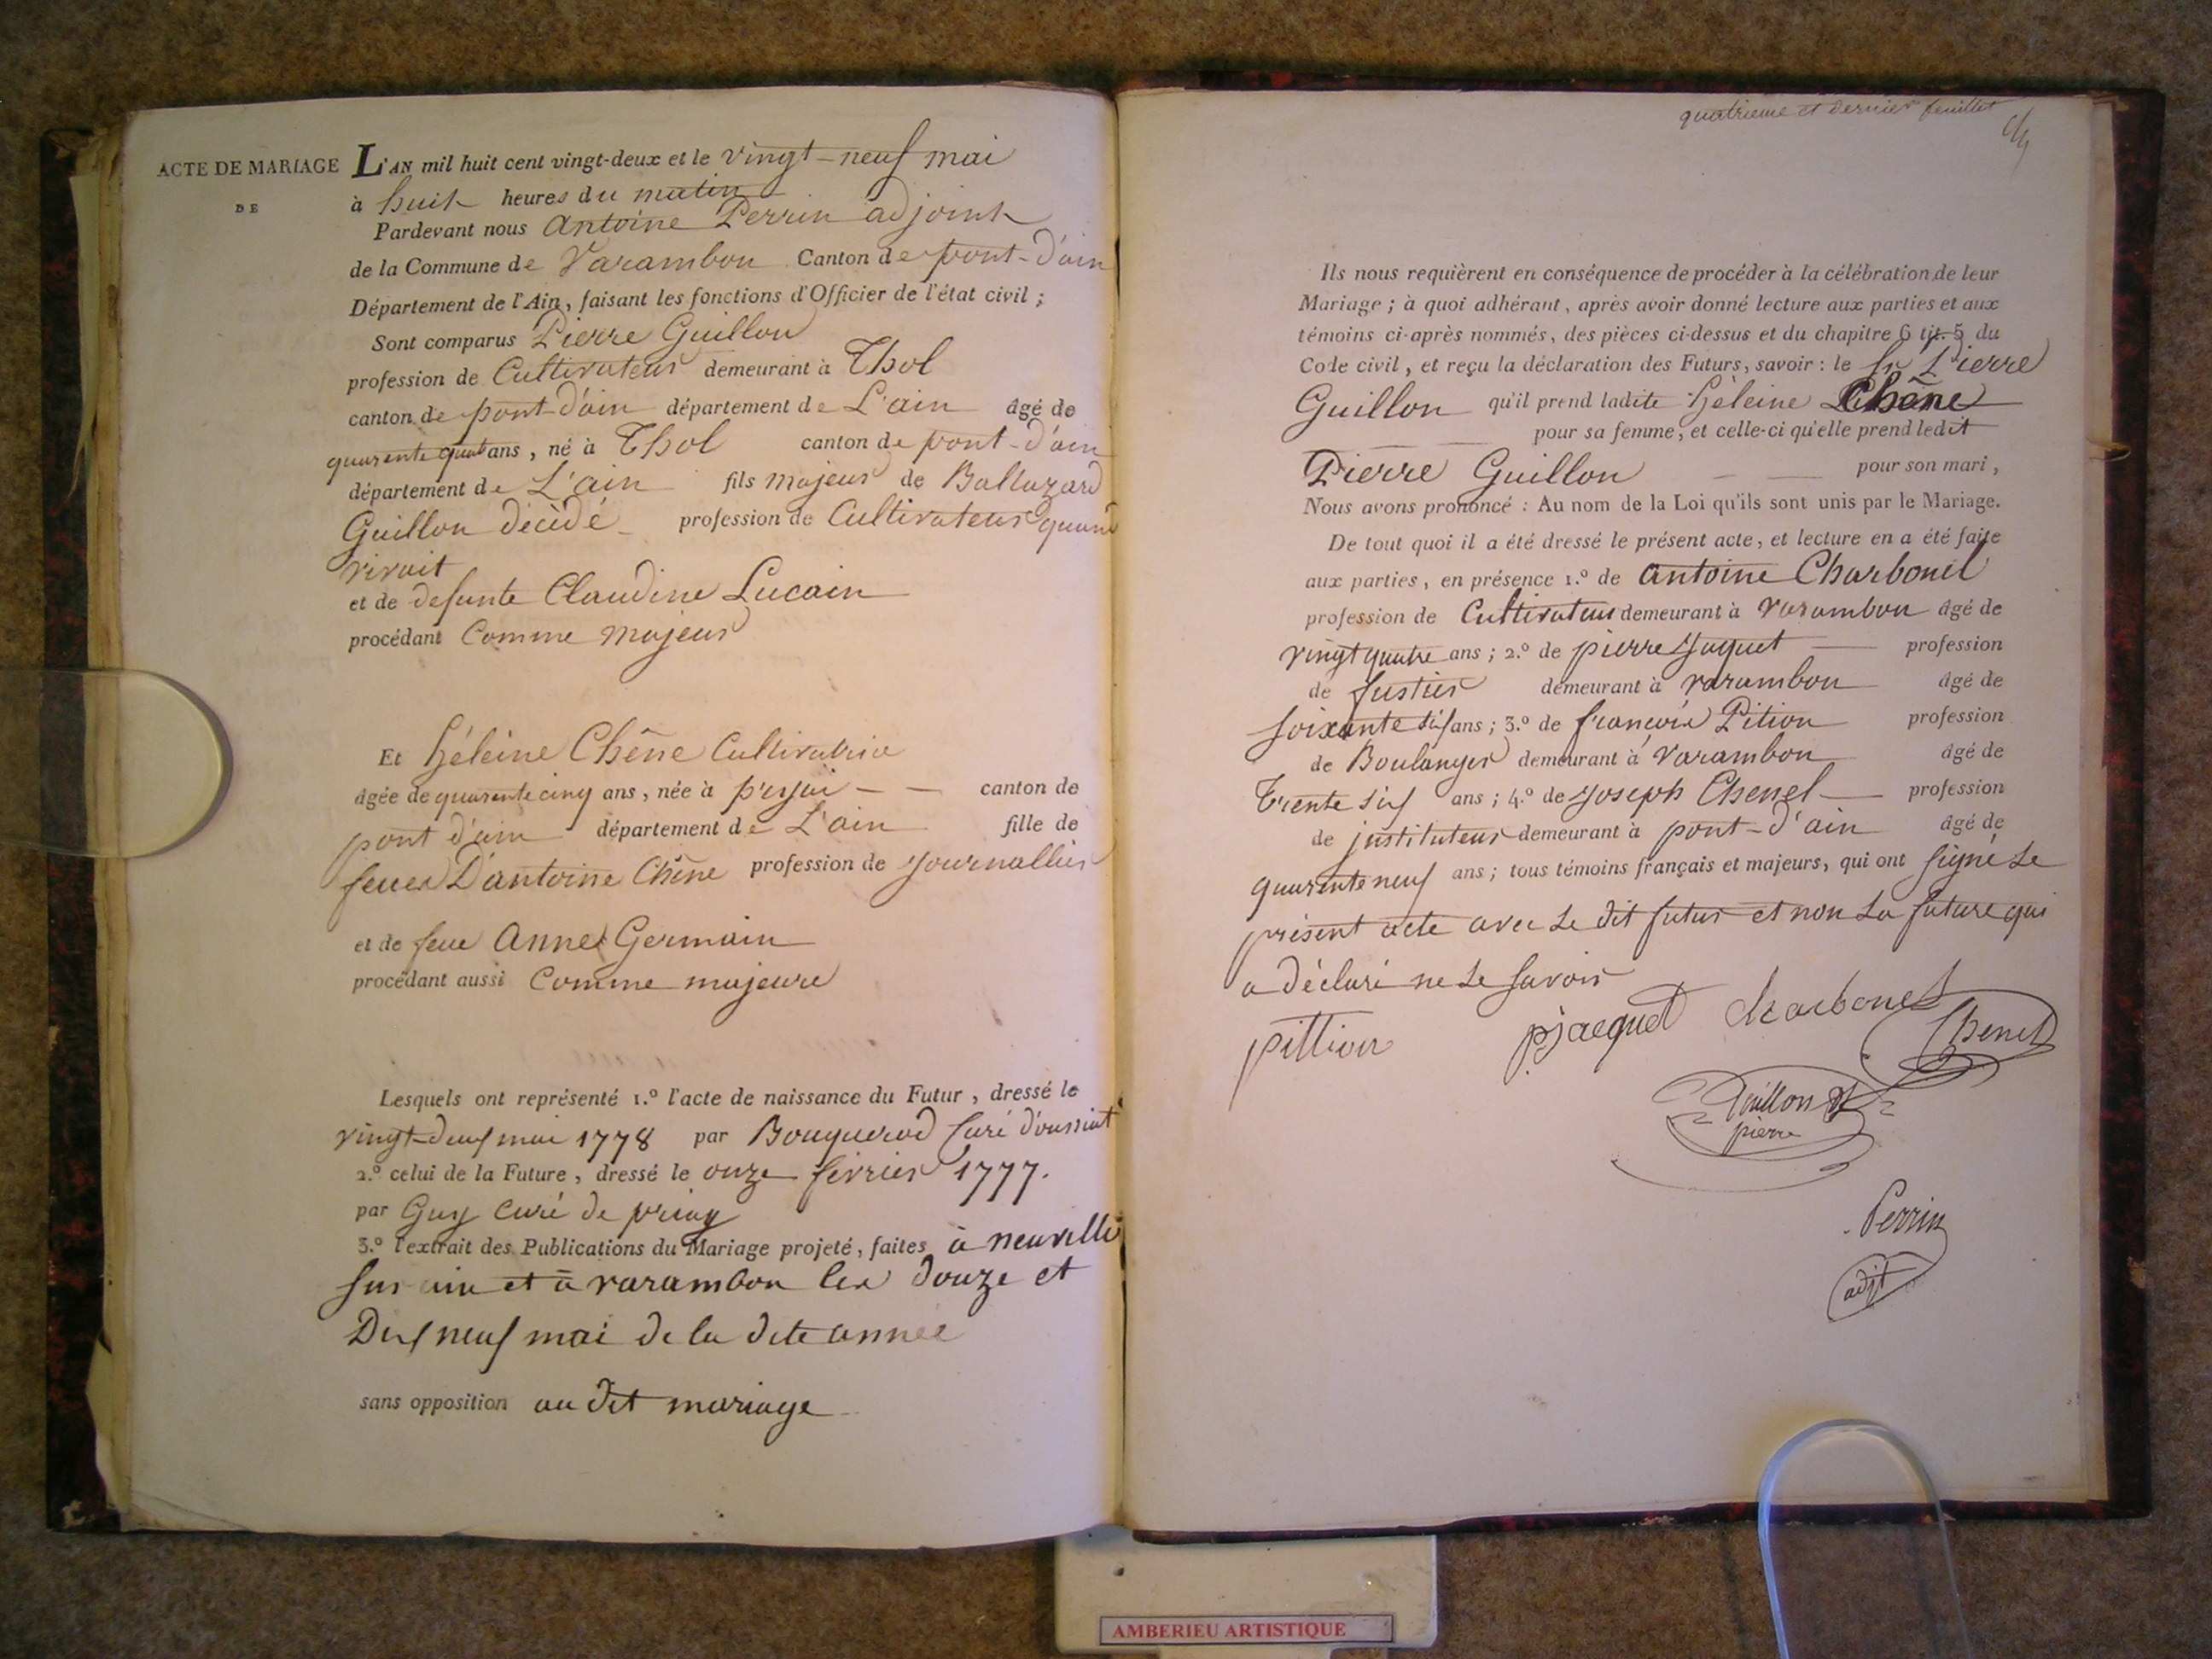 ACTE DE MARIAGE
DE
L'AN mil huit cent vingt-deux et le vingt-neuf mai
à huit heures du matin
Pardevant nous Antoine Perrin adjoint
de la Commune de Varambon Canton de pont-d'ain
Département de l'Ain, faisant les fonctions d'Officier de l'état civil ;
Sont comparus Pierre Guillon
profession de Cultivateur demeurant à Thol
canton de pont-d'ain département de L'ain âgé de
quarente quat ans, né à Thol canton de pont-d'ain
département de L'ain fils majeur de Baltazard
Guillon décidé profession de Cultivateur quand
vivait
et de defunte Claudine Lucain
procédant Comme majeur
Et héleine Chêne Cultivatrice
âgée de quarente cinq ans, née à canton de
pont d'ain département de L'ain fille de
feue D'antoine Chêne profession de journallier
et de feue Anne Germain
procédant aussi Comme majeure
Lesquels ont représenté 1.º l'acte de naissance du Futur, dressé le
vingt-deux mai 1778 par Bouquerod Curé
2.º celui de la Future, dressé le onze février 1777.
par Guy Curé de priay
3.º l'extrait des Publications du Mariage projeté, faites à neuville
sur ain et à varambon les douze et
Dix neuf mai de la dite année
sans opposition au dit mariage
quatrieme et dernier feuillet
Ils nous requièrent en conséquence de procéder à la célébration de leur
Mariage ; à quoi adhérant, après avoir donné lecture aux parties et aux
témoins ci-après nommés, des pièces ci-dessus et du chapitre 6 tit. 5 du
Code civil, et reçu la déclaration des Futurs, savoir : le sr Pierre
Guillon qu'il prend ladite héleine Chêne
pour sa femme, et celle-ci qu'elle prend ledit
Pierre Guillon pour son mari,
Nous avons prononcé : Au nom de la Loi qu'ils sont unis par le Mariage.
De tout quoi il a été dressé le présent acte, et lecture en a été faite
aux parties, en présence 1.º de Antoine Charbonel
profession de Cultivateur demeurant à varambon âgé de
vingt quatre ans ; 2.º de pierre jaquet profession
de demeurant à varambon âgé de
soixante six ans ; 3.º de francois Pition profession
de Boulanger demeurant à varambon âgé de
trente six ans ; 4.º de joseph Chenel profession
de jnstituteur demeurant à pont-d'ain âgé de
quarente neuf ans ; tous témoins français et majeurs, qui ont signé le
présent acte avec le dit futur et non la future qui
a déclaré ne le savoir
pittion pjacquet charbonel
Chenel
Guillon
pierre
Perrin
adjt
AMBERIEU ARTISTIQUE